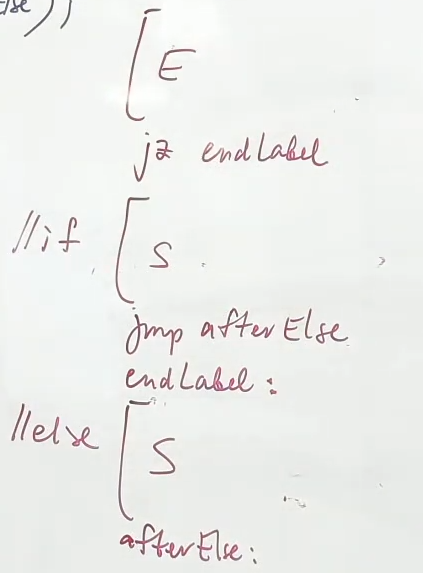 E
jz endLabel
//if S
jmp afterElse
endLabel:
//else S
afterElse: